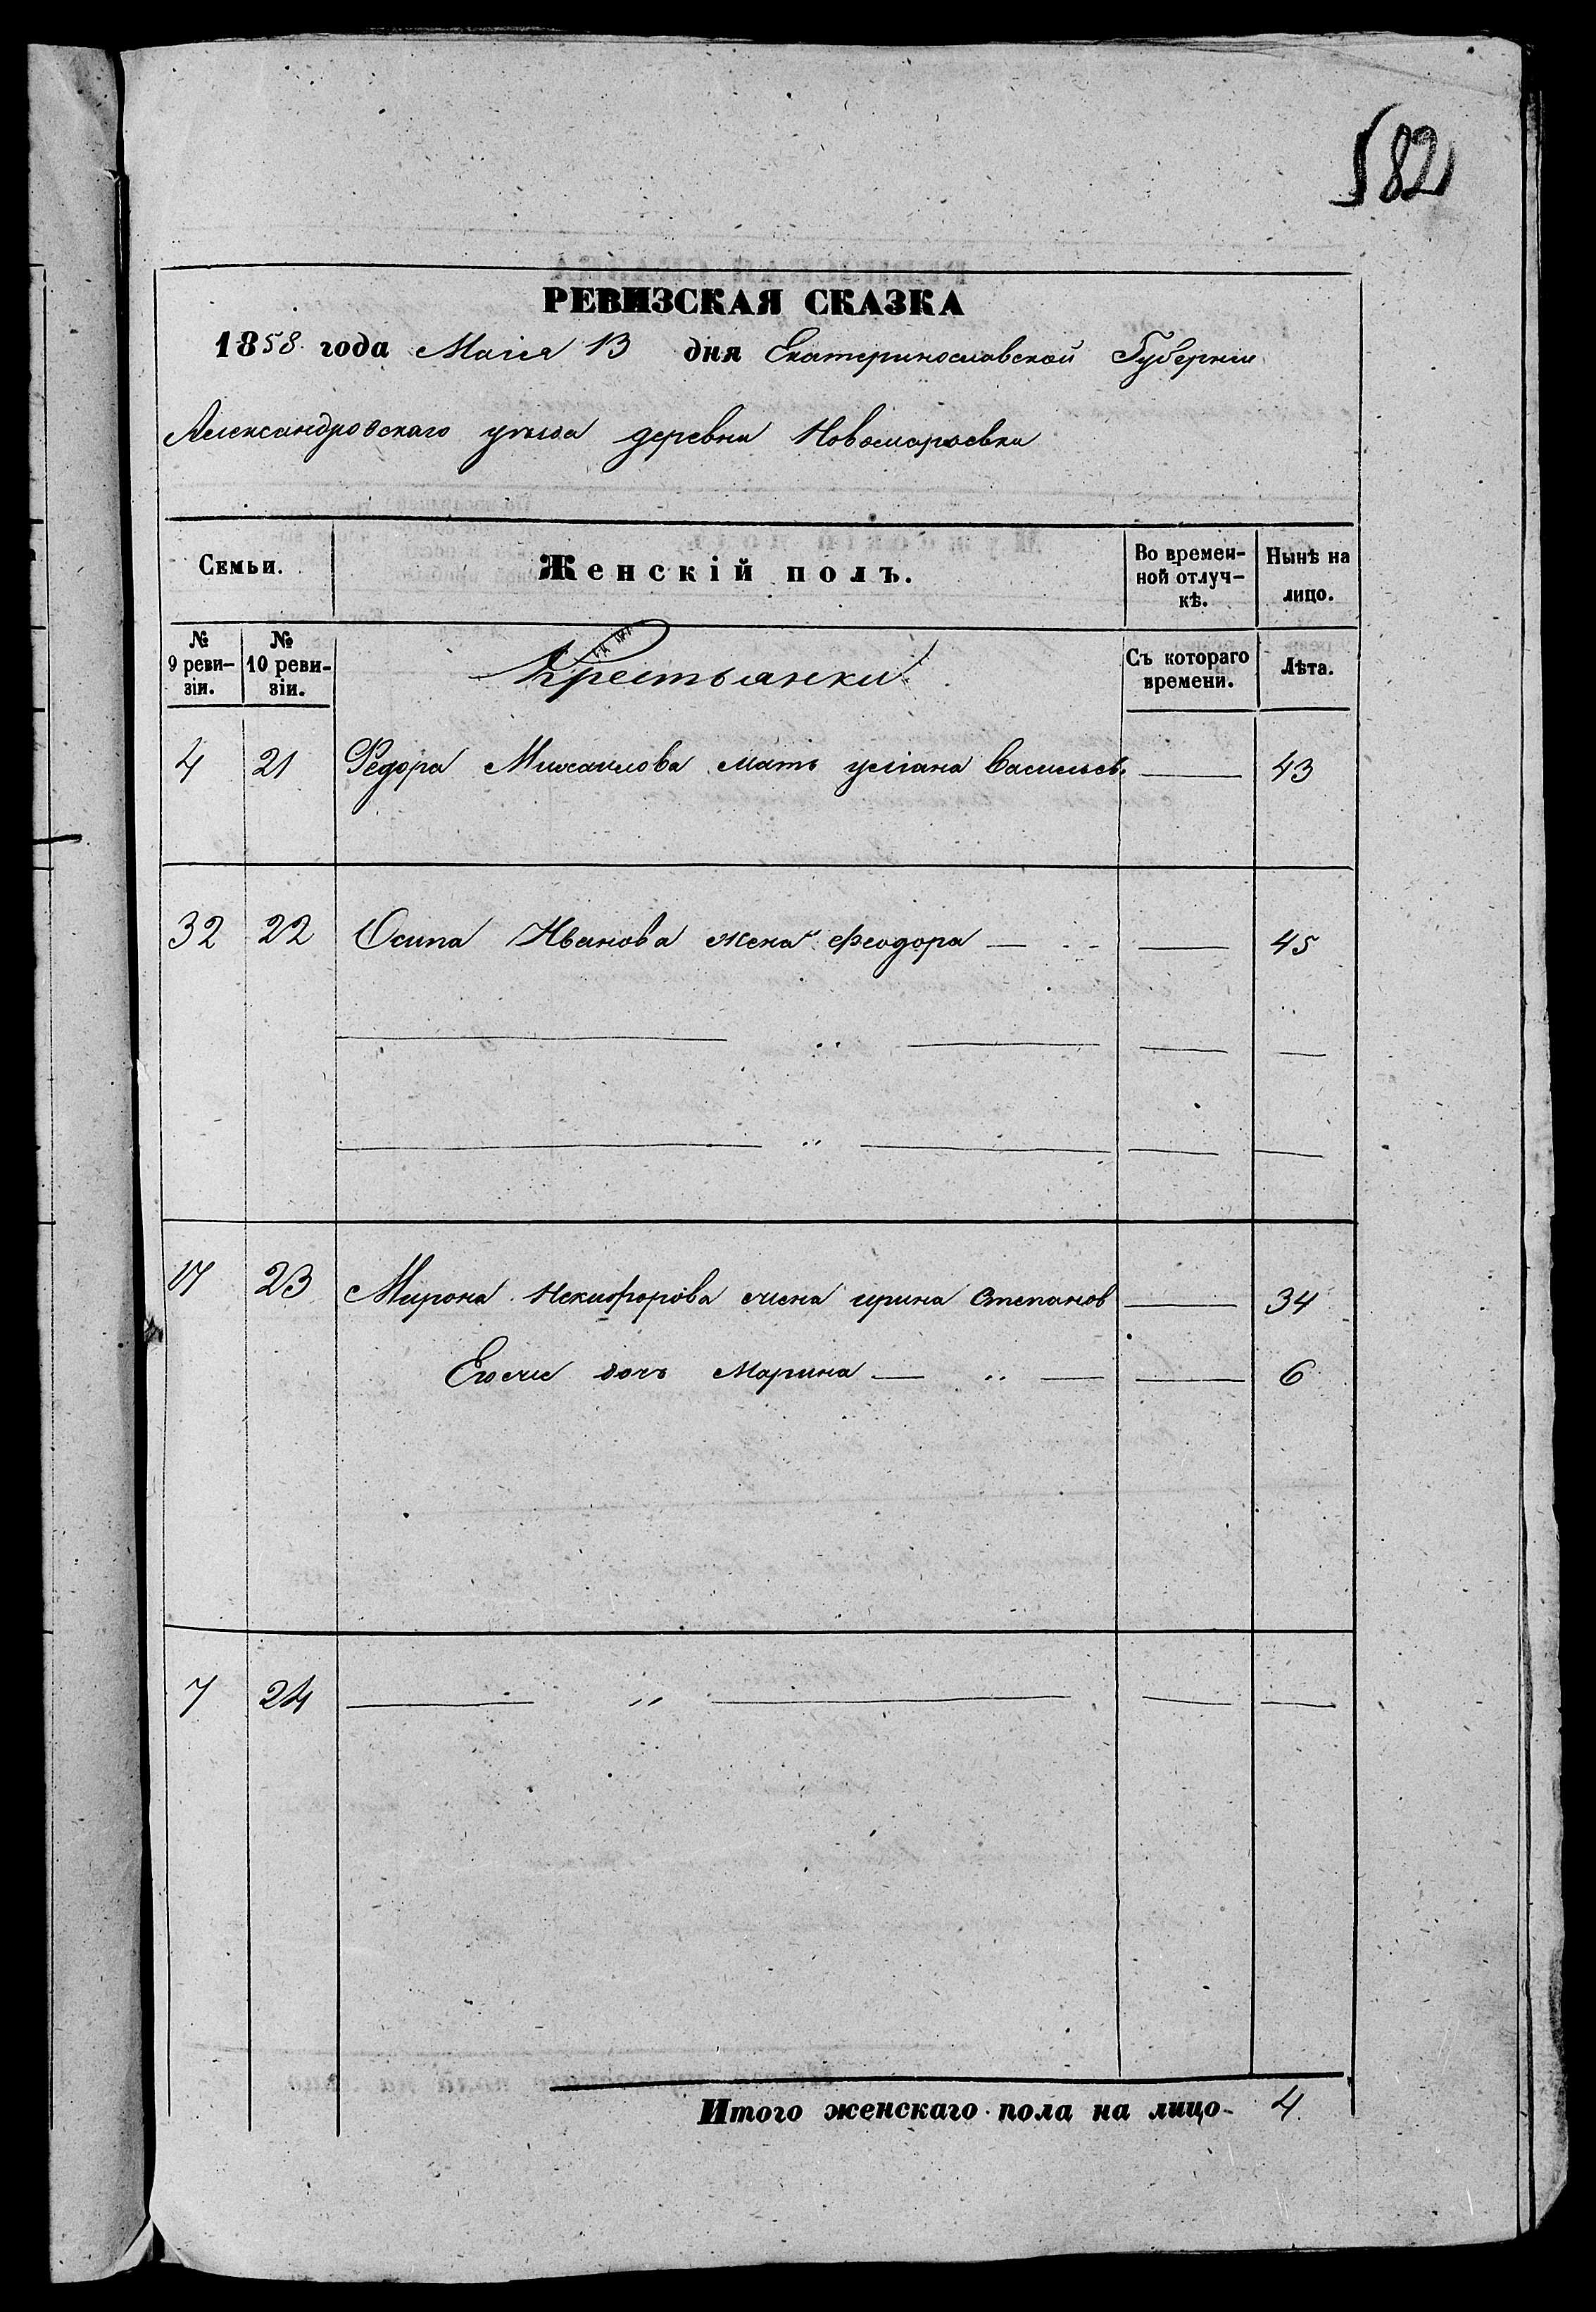 582
РЕВИЗСКАЯ СКАЗКА
1858 года Маия 13 дня Екатеринославской Губернии
Александровскаго уѣзда деревни
Семьи. Женскій полъ. Во времен-ной отлуч-кѣ. Нынѣ на лицо.
№ 9 реви-зіи. № 10 реви-зіи. Крестьянки Съ котораго времени. Лѣта.
4 21 Федора Михаилова мать Васильев. — 43
32 22 Осипа Иванова жена феодора — — 45
17 23 Мирона Никифорова жена ирина Степанов — 34
Егоже дочь Марина — „ — — 6
7 24 — „ — — —
Итого женскаго пола на лицо- 4